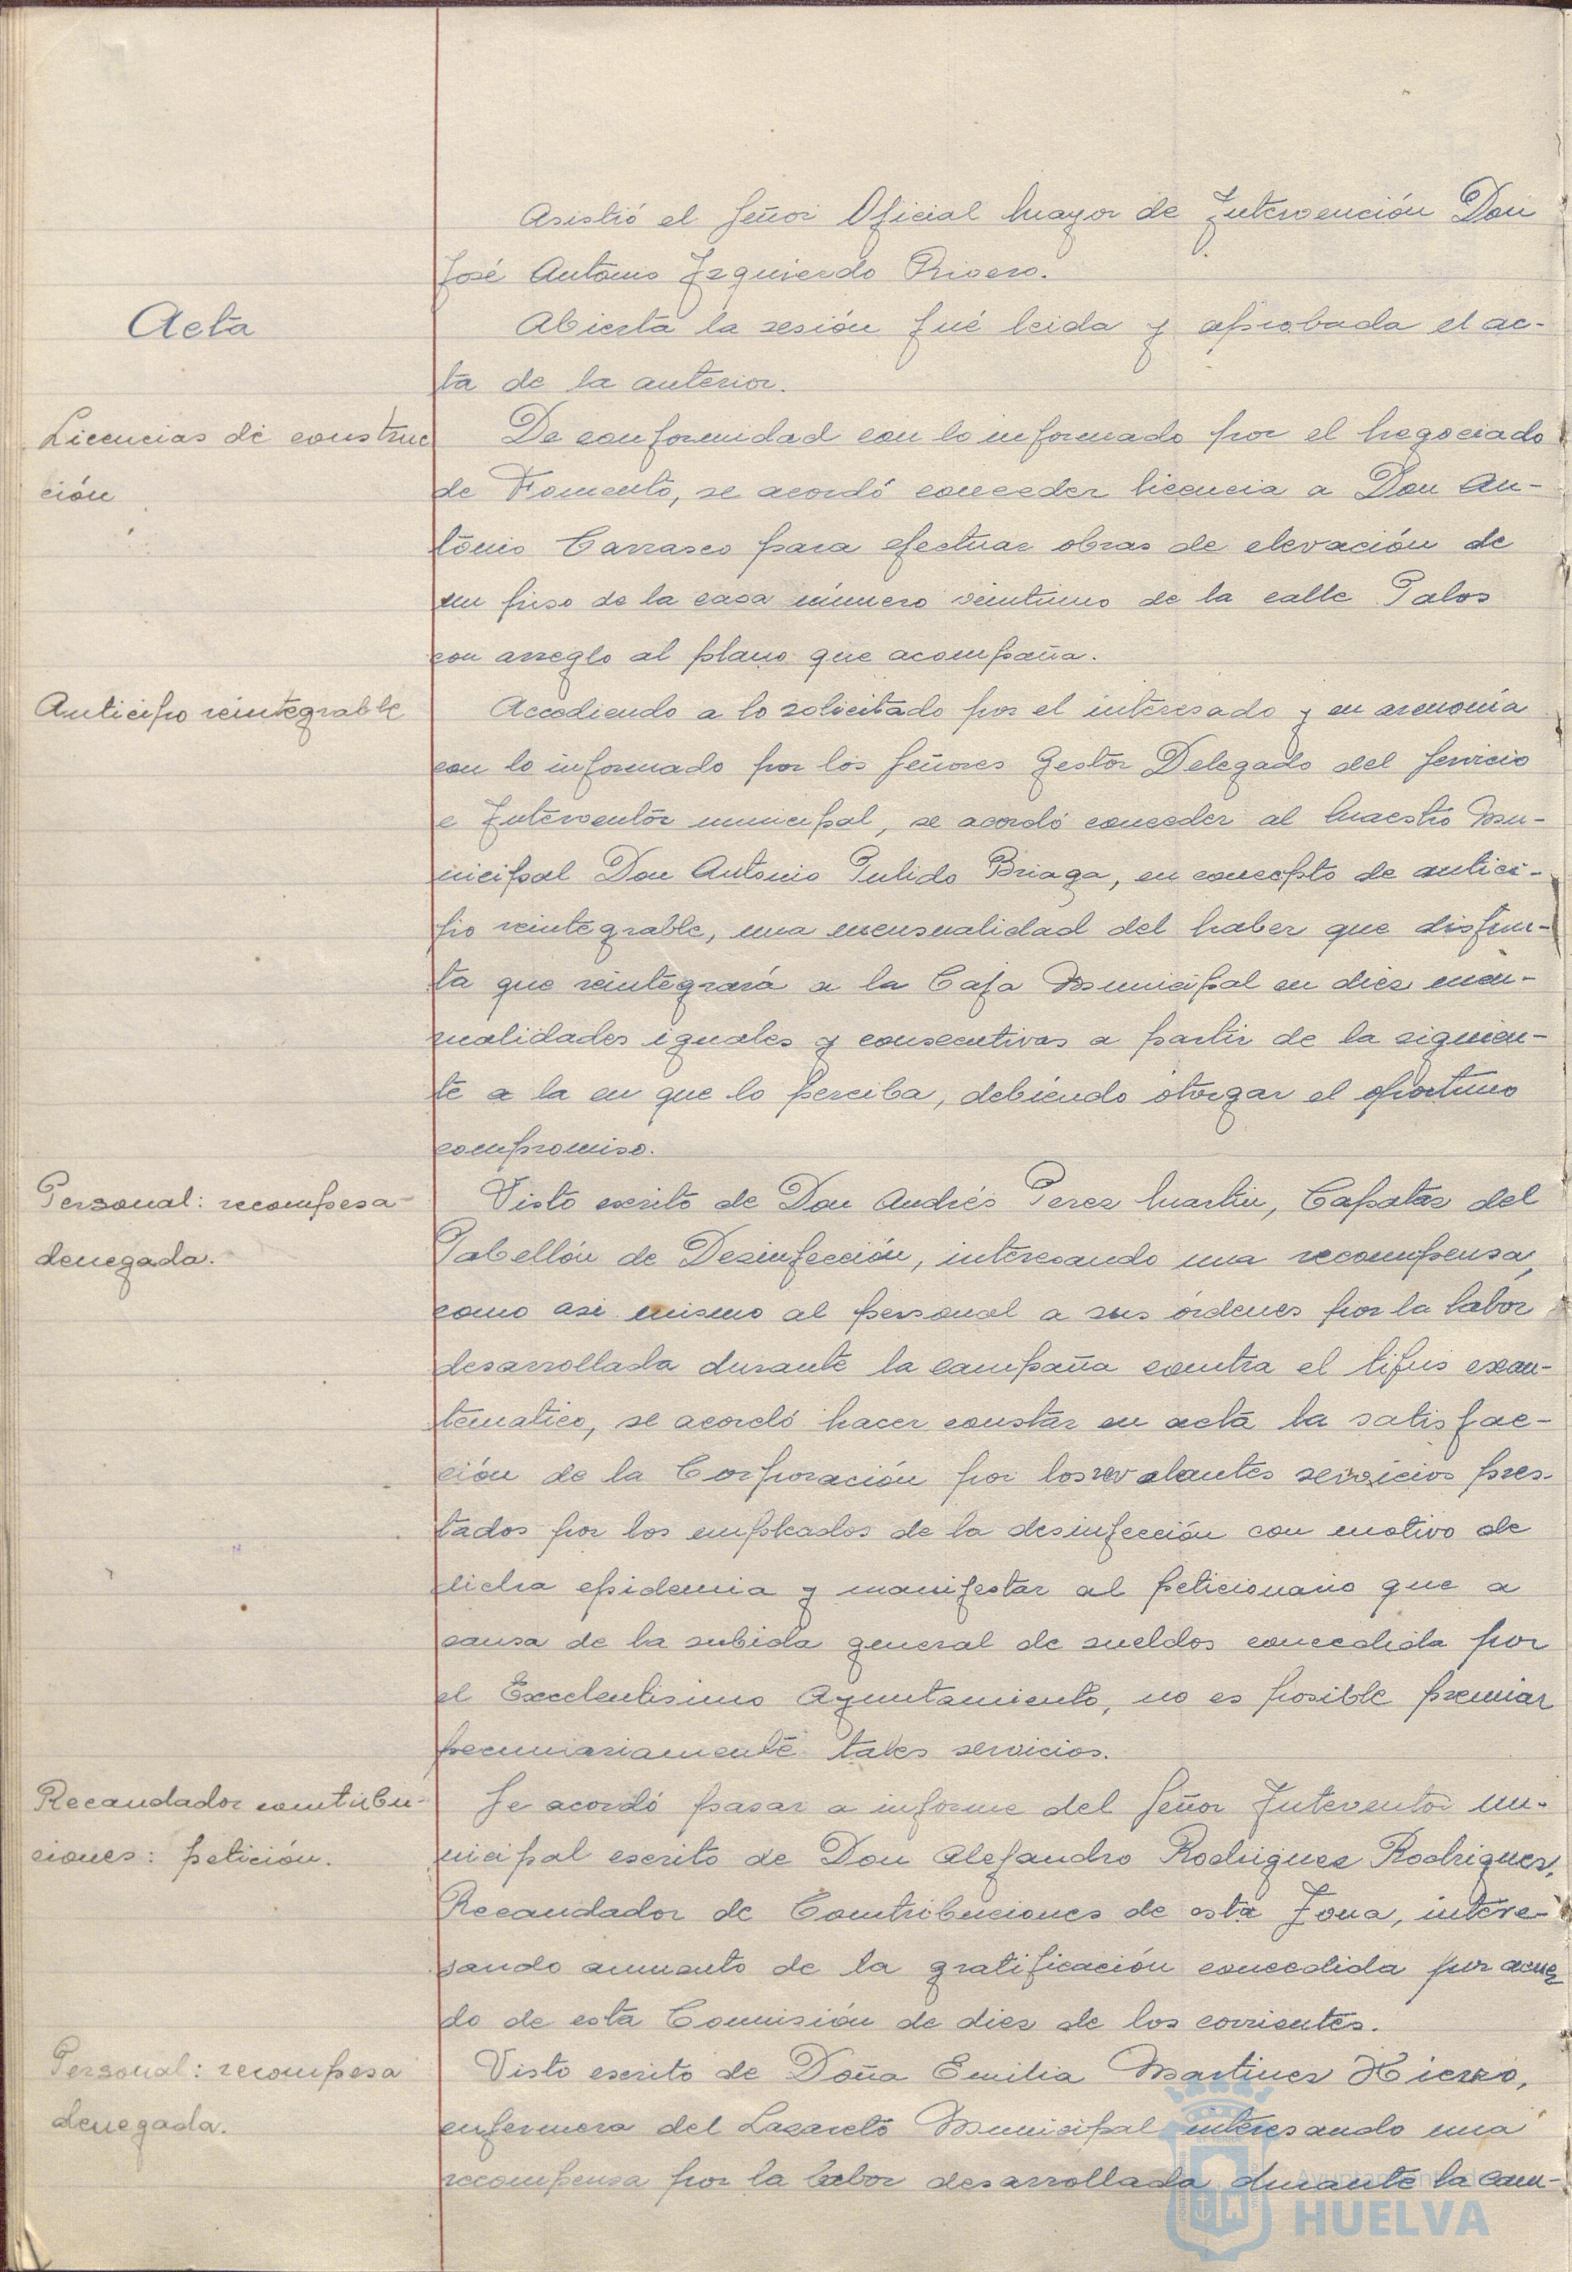 Asistió el Señor Oficial Mayor de Intervención Don
José Antonio Izquierdo Rivero.
Acta
Abierta la sesión fué leida y aprobada el ac-
ta de la anterior.
Licencias de construc
ción
De conformidad con lo informado por el Negociado
de Fomento, se acordó conceder licencia a Don An-
tonio Carrasco para efectuar obras de elevación de
un piso de la casa número veintiuno de la calle Palos
con arreglo al plano que acompaña.
Anticipo reintegrable
Accediendo a lo solicitado por el interesado y en armonía
con lo informado por los Señores Gestor Delegado del Servicio
e Interventor municipal, se acordó conceder al Maestro Mu-
nicipal Don Antonio Pulido Briaga, en concepto de antici-
po reintegrable, una mensualidad del haber que disfru-
ta que reintegrará a la Caja Municipal en diez men-
sualidades iguales y consecutivas a partir de la siguien-
te a la en que lo perciba, debiendo otorgar el oportuno
compromiso.
Personal: recompesa-
denegada.
Visto escrito de Don Andrés Perez Martin, Capataz del
Pabellón de Desinfección, interesando una recompensa,
como asi mismo al personal a sus órdenes por la labor
desarrollada durante la campaña contra el tifus exan-
tematico, se acordó hacer constar en acta la satisfac-
ción de la Corporación por los relevantes servicios pres-
tados por los empleados de la desinfección con motivo de
dicha epidemia y manifestar al peticionario que a
causa de la subida general de sueldos concedida por
el Excelentisimo Ayuntamiento, no es posible premiar
pecuniariamente tales servicios.
Recaudador contribu-
ciones: petición.
Se acordó pasar a informe del Señor Interventor mu-
nicipal escrito de Don Alejandro Rodriguez Rodriguez,
Recaudador de Contribuciones de esta Zona, intere-
sando aumento de la gratificación concedida por acuer
do de esta Comisión de diez de los corrientes.
Personal: recompesa
denegada.
Visto escrito de Doña Emilia Martinez Hierro,
enfermera del Lazareto Municipal interesando una
recompensa por la labor desarrollada durante la cam-
Ayuntamiento de
HUELVA